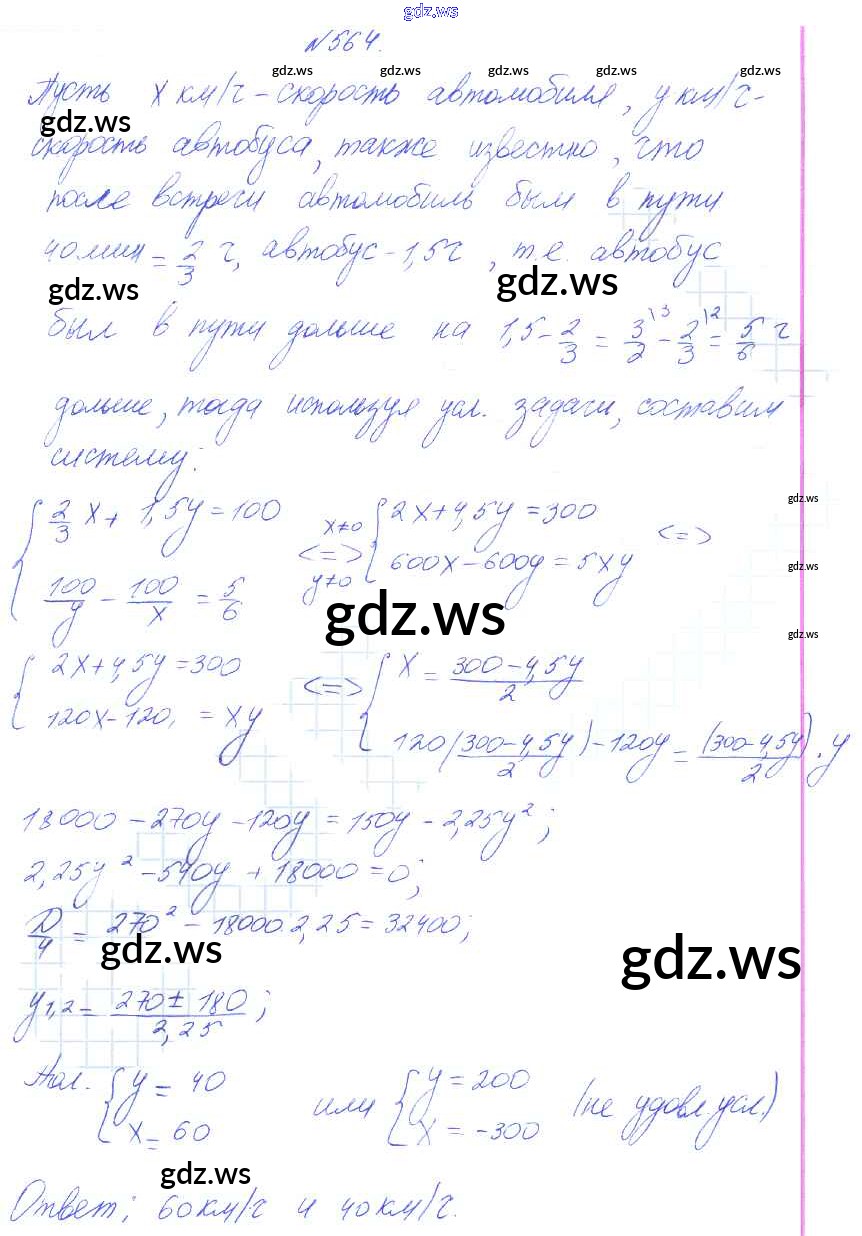 gdz.ws
№564.
gdz.ws gdz.ws gdz.ws gdz.ws gdz.ws
Пусть x км/ч - скорость автомобиля, y км/ч -
gdz.ws
скорость автобуса, также известно, что
после встречи автомобиль был в пути
40 мин = 2/3 ч, автобус - 1,5 ч, т.е. автобус
gdz.ws gdz.ws
был в пути дольше на 1,5 - 2/3 = 3/2 \3 - 2/3 \2 = 5/6 ч
дольше, тогда используя усл. задачи, составим
систему:
{ 2/3 x + 1,5y = 100 x≠0 { 2x + 4,5y = 300 gdz.ws
<=> <=>
{ 100/y - 100/x = 5/6 y≠0 { 600x - 600y = 5xy gdz.ws
gdz.ws gdz.ws
{ 2x + 4,5y = 300 <=> { x = (300 - 4,5y)/2
{ 120x - 120, = xy { 120((300 - 4,5y)/2) - 120y = (300 - 4,5y)/2 · y
18000 - 270y - 120y = 150y - 2,25y²;
2,25y² - 540y + 18000 = 0;
D/4 = 270² - 18000·2,25 = 32400;
gdz.ws gdz.ws
y1,2 = (270 ± 180)/2,25;
{ y = 40 или { y = 200 (не удовл. усл.)
{ x = 60 { x = -300
gdz.ws
Ответ: 60 км/ч и 40 км/ч.